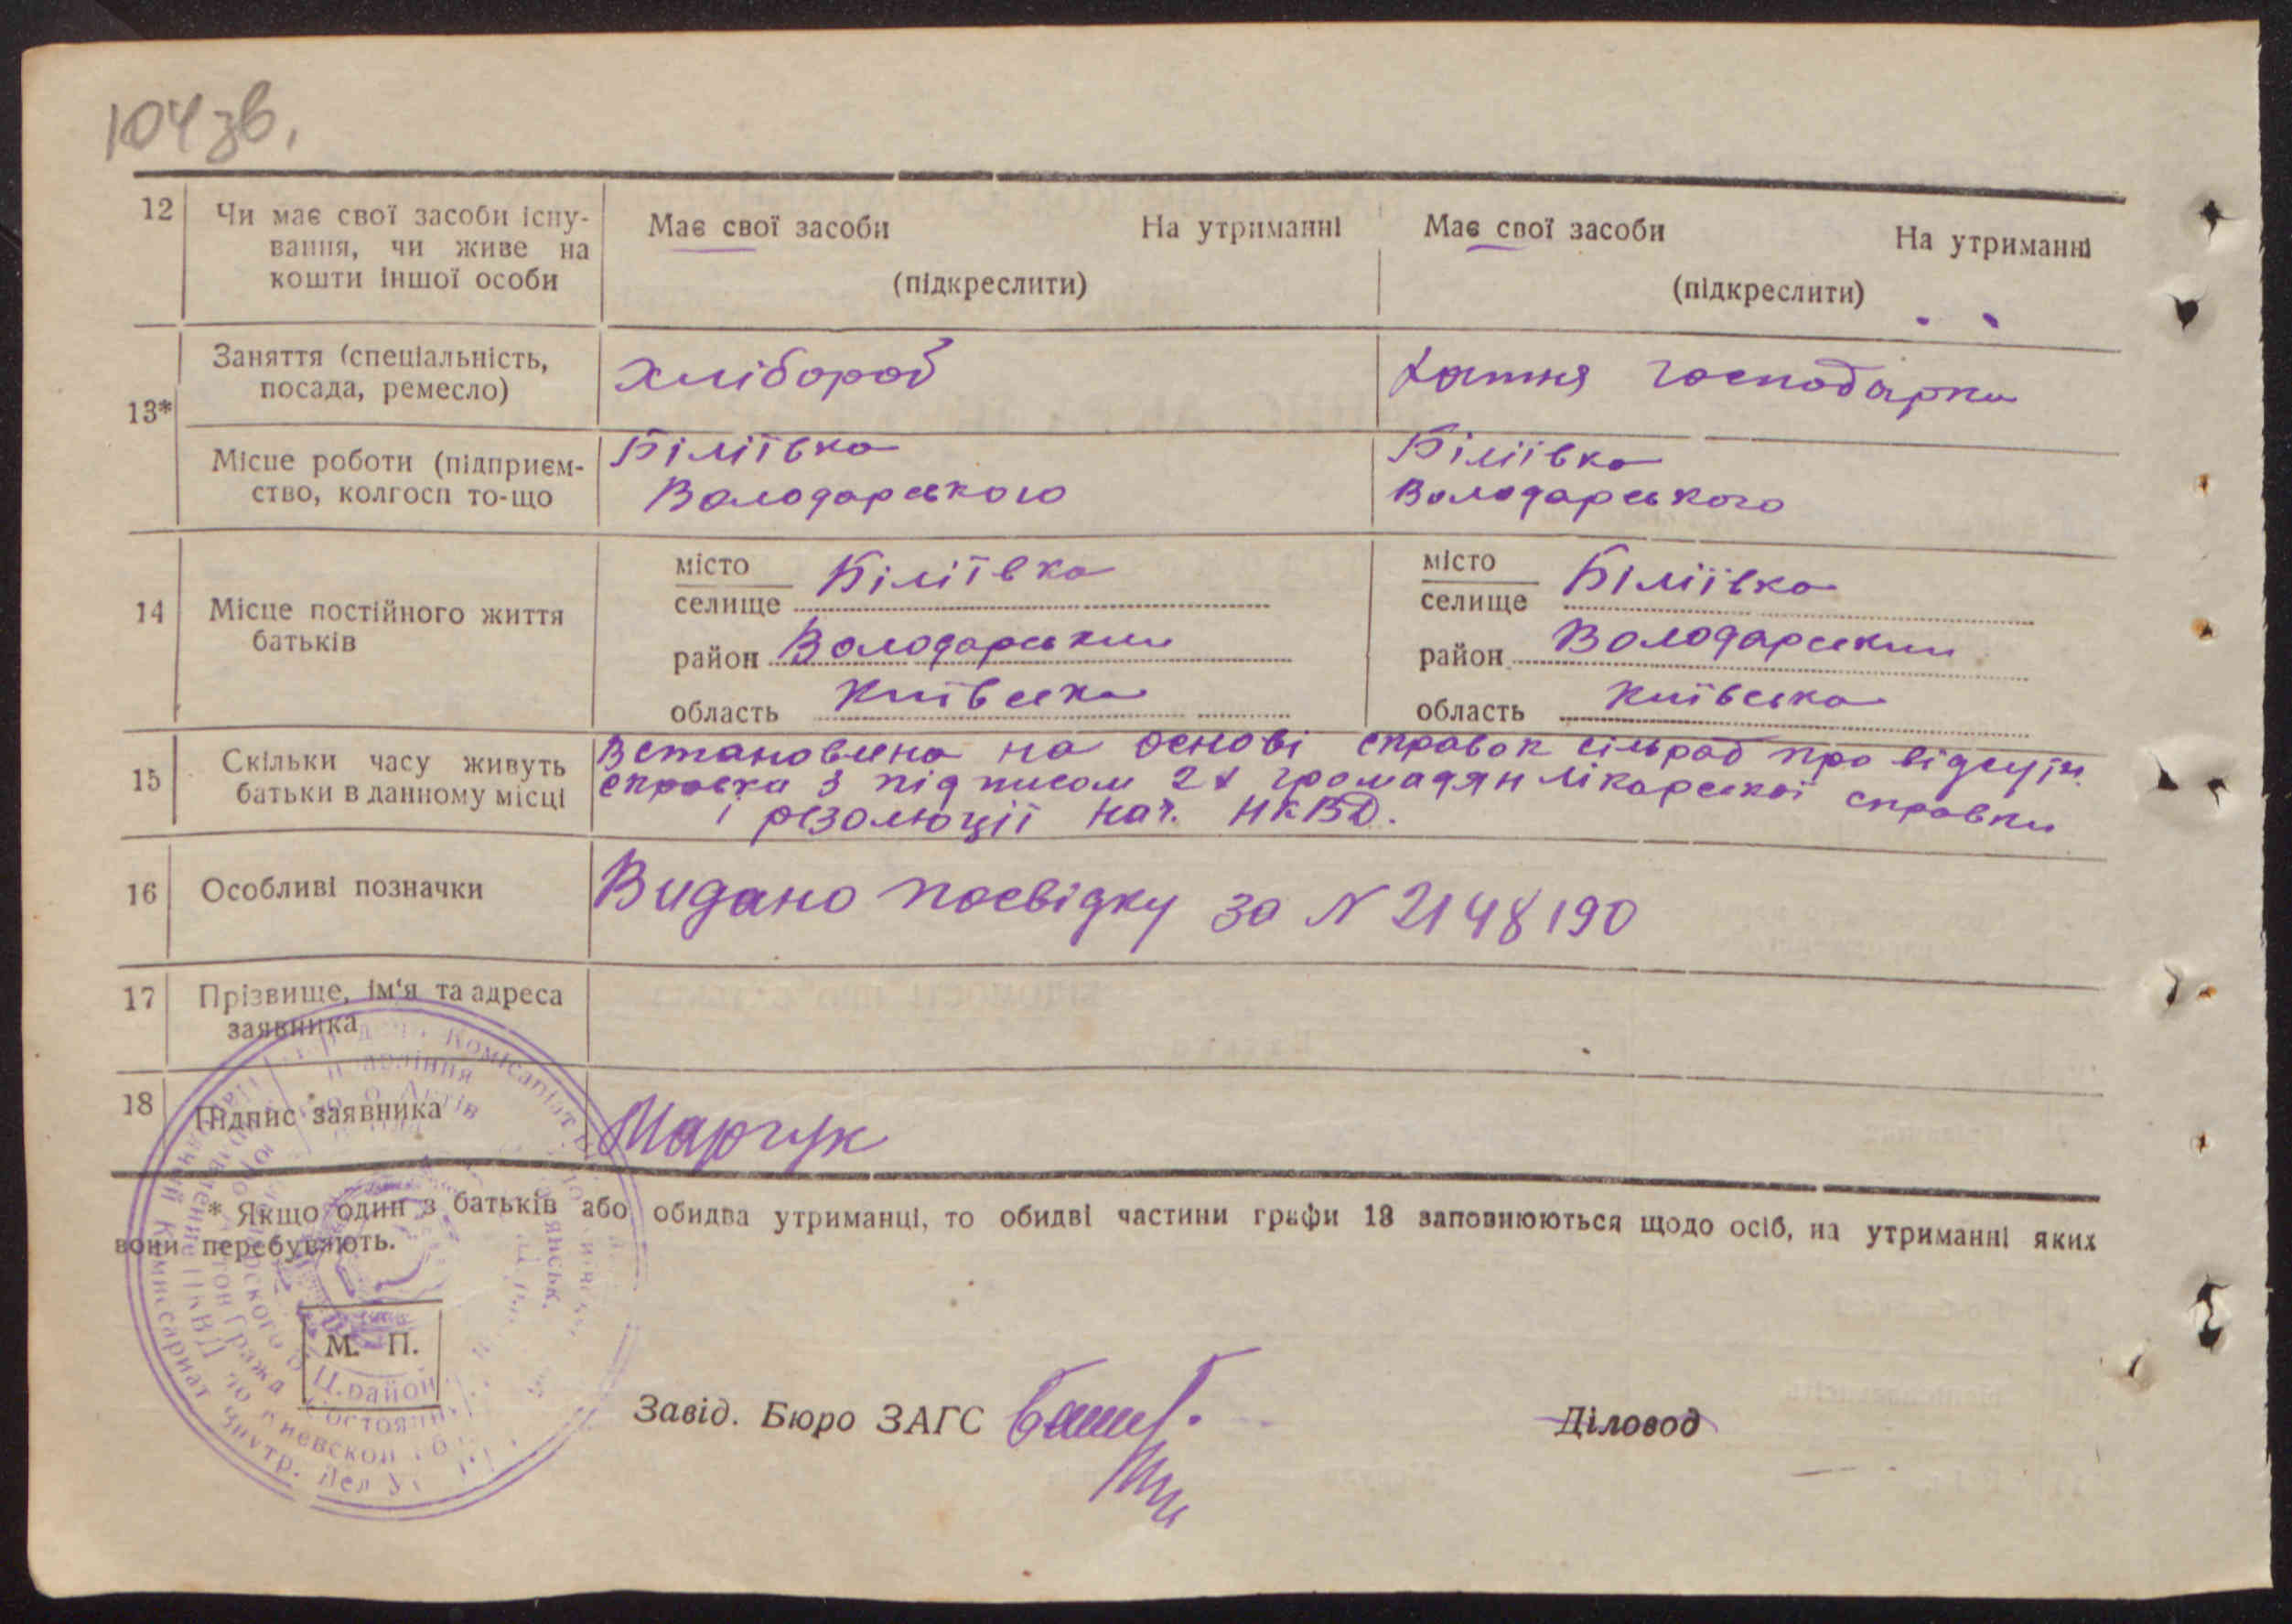 104 зв.
12 Чи має свої засоби існу- Має свої засоби На утриманні Має свої засоби На утриманні
вання, чи живе на
кошти іншої особи (підкреслити) (підкреслити)
Заняття (спеціальність, хлібороб хатня господарка
посада, ремесло)
13*
Місце роботи (підприєм- Біліївка Біліївка
ство, колгосп то-що Володарського Володарського
місто Біліївка місто Біліївка
селище селище
14 Місце постійного життя
батьків район Володарський район Володарський
область Київська область Київська
15 Скільки часу живуть Встановлено на основі справок сільрад про відсутн.
батьки в данному місці справка з підписом 2х громадян лікарської справки
і резолюції нач. НКВД.
16 Особливі позначки Видано посвідку за N 2148190
17 Прізвище, ім'я та адреса
заявника
18 Підпис заявника Марчук
* Якщо один з батьків або обидва утриманці, то обидві частини графи 13 заповнюються щодо осіб, на утриманні яких
вони перебувають.
М. П.
Завід. Бюро ЗАГС Діловод